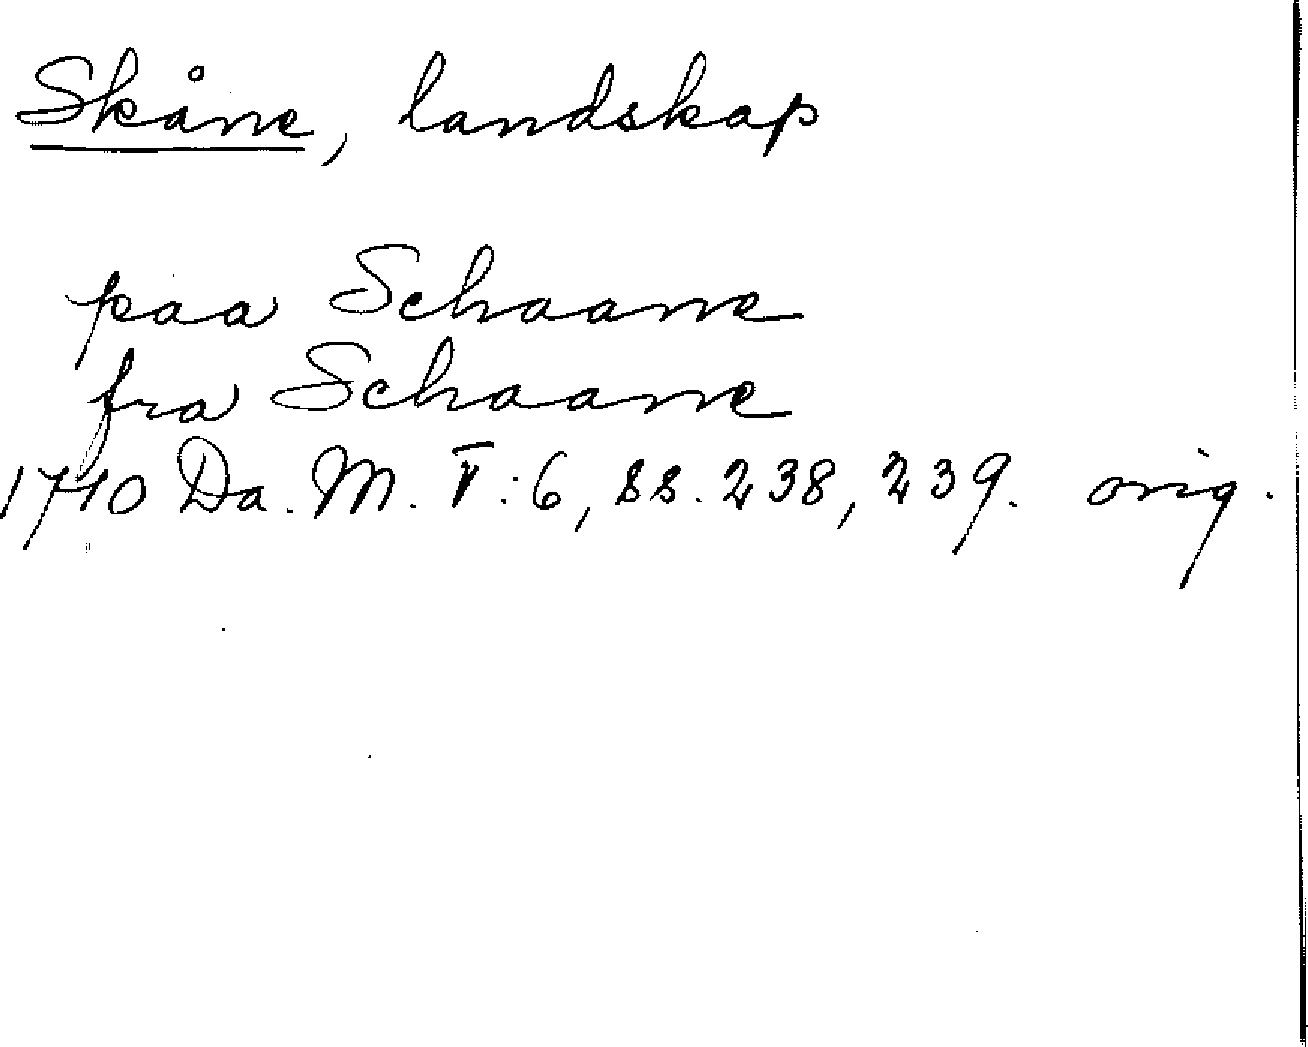 Skåne, landskap
paa Schaane
fra Schaane
1710 Da. M. V:6, ss. 238, 239. orig.